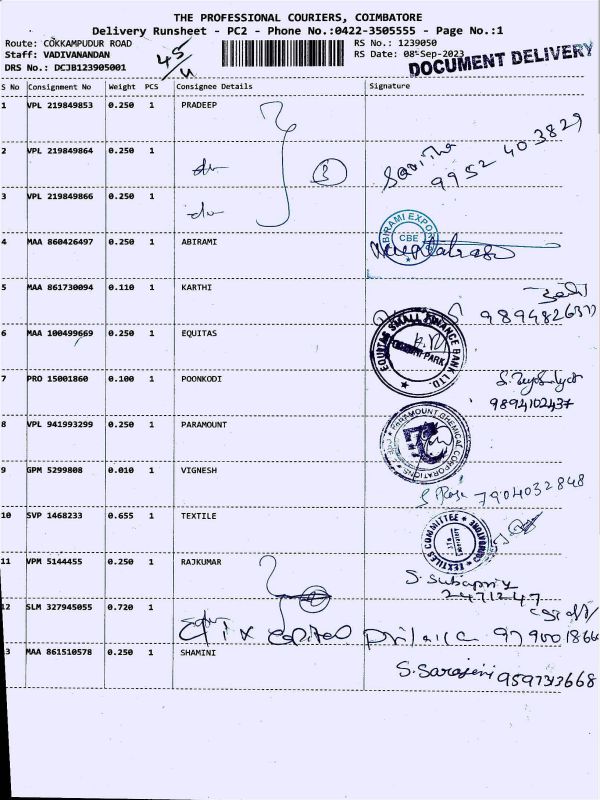 THE PROFESSIONAL COURIERS, COIMBATORE
Delivery Runsheet - PC2 - Phone No.:0422-3505555 - Page No.:1
Route: COKKAMPUDUR ROAD RS No.: 1239050
Staff: VADIVANANDAN RS Date: 08-Sep-2023
DRS No.: DCJB123905001
45/4
DOCUMENT DELIVERY
S No Consignment No Weight PCS Consignee Details Signature
1 VPL 219849853 0.250 1 PRADEEP
2 VPL 219849864 0.250 1
3
Savitha
9952 40 3829
3 VPL 219849866 0.250 1
4 MAA 860426497 0.250 1 ABIRAMI
ABIRAMI EXPORTS
CBE
5 MAA 861730094 0.110 1 KARTHI
6 MAA 100499669 0.250 1 EQUITAS
EQUITAS SMALL FINANCE BANK LTD.
7 PRO 15001860 0.100 1 POONKODI
9894102437
8 VPL 941993299 0.250 1 PARAMOUNT
PARAMOUNT CHEMICAL CORPORATION
CBE
9 GPM 5299808 0.010 1 VIGNESH
7904032848
10 SVP 1468233 0.655 1 TEXTILE
TEXTILES COMMITTEE
COIMBATORE
11 VPM 5144455 0.250 1 RAJKUMAR
S. Subapriya
2471247
12 SLM 327945055 0.720 1
3 MAA 861510578 0.250 1 SHAMINI
S. Sarojini 9597313668